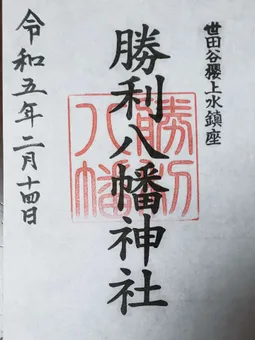 世田谷櫻上水鎮座
勝利八幡神社
勝利八幡
令和五年二月十四日